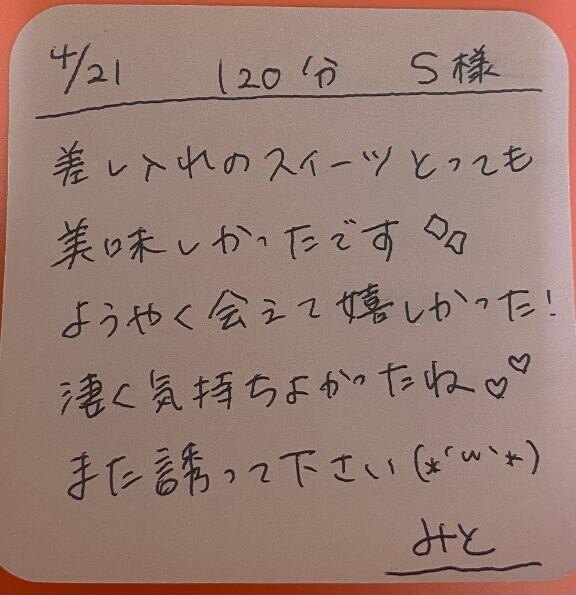 4/21 120分 S様
差し入れのスイーツとっても
美味しかったです◇◇
ようやく会えて嬉しかった!
凄く気持ちよかったね♡♡
また誘って下さい(*´ω`*)
みと